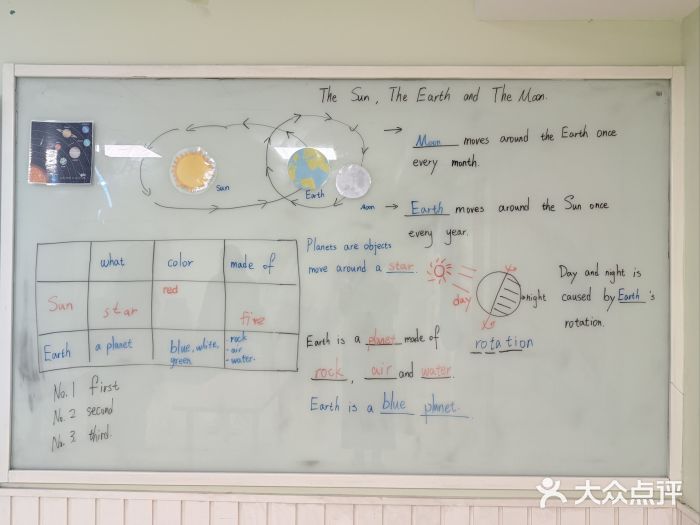 The Sun, The Earth and The Moon.
Sun
Earth
Moon
→ Moon moves around the Earth once
every month.
→ Earth moves around the Sun once
every year.
what color made of
Sun star red fire
Earth a planet blue, white, green - rock - air - water.
No. 1 first
No. 2 second
No. 3. third.
Planets are objects
move around a star.
day
night
rotation
Day and night is
caused by Earth's
rotation.
Earth is a planet made of
rock, air and water.
Earth is a blue planet.
大众点评